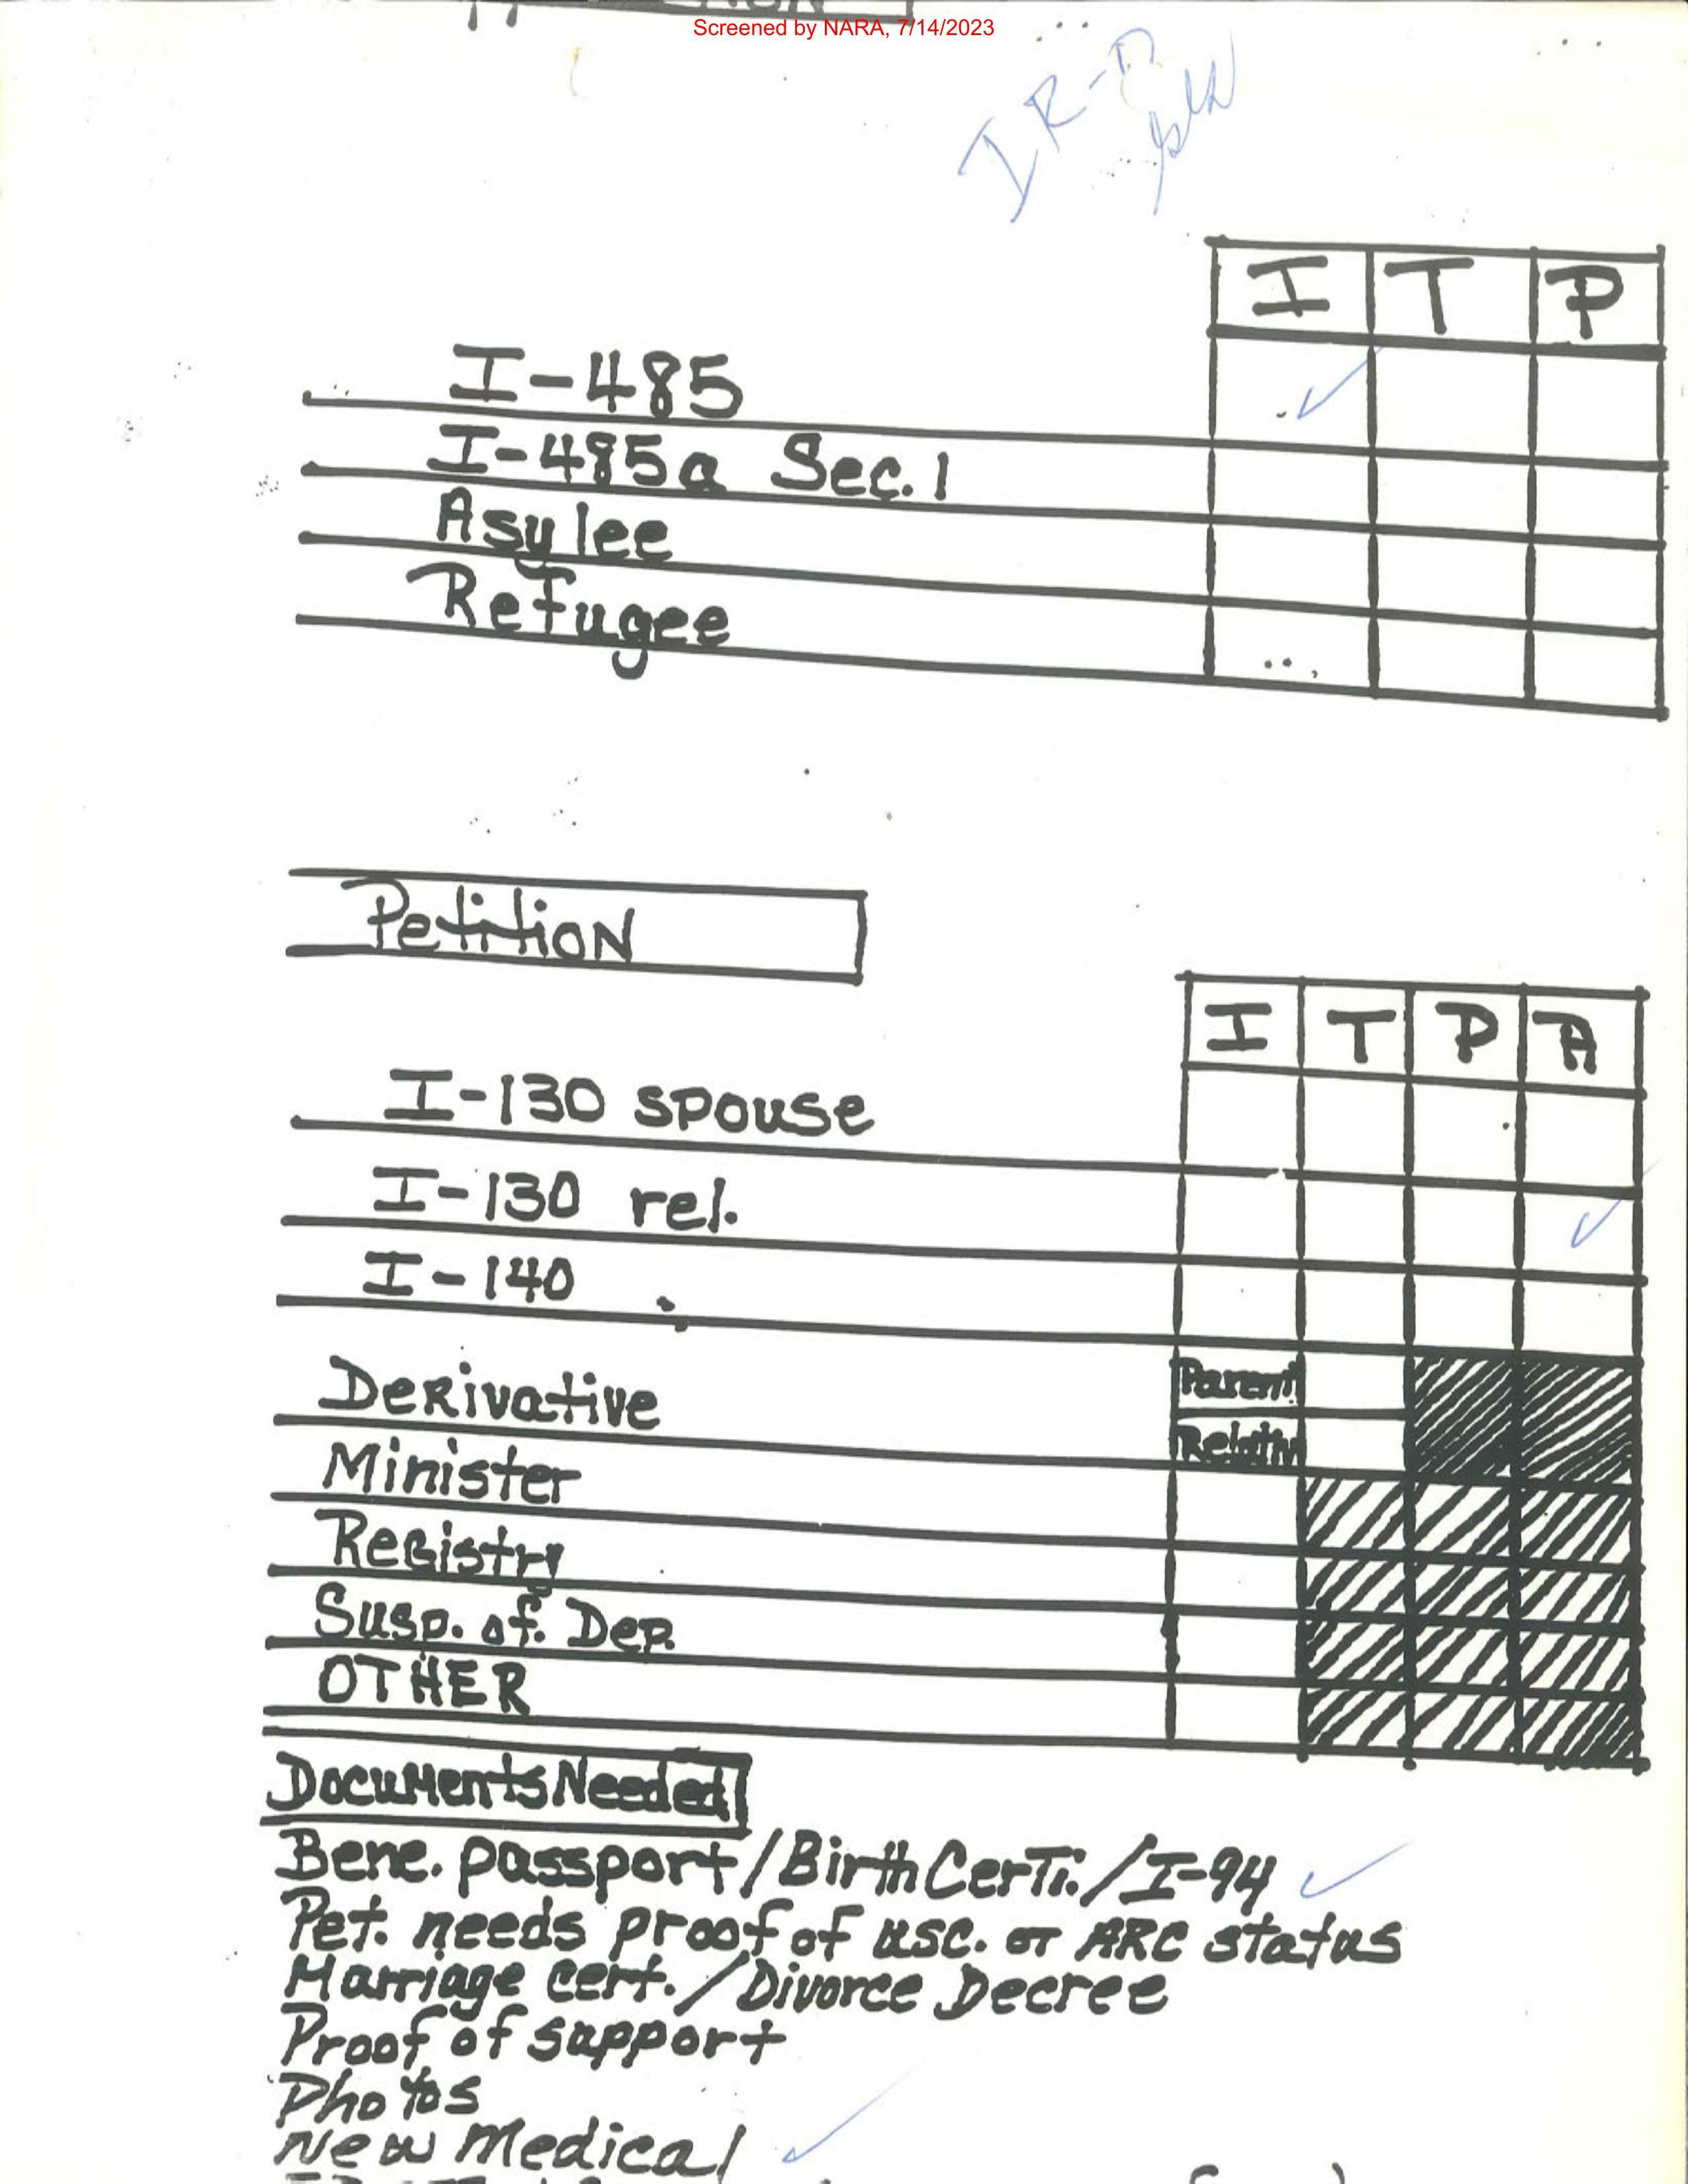 Screened by NARA, 7/14/2023
I T P
I-485 ✓
I-485a Sec. 1
Asylee
Refugee
Petition
I T P A
I-130 spouse
I-130 rel. ✓
I-140
Derivative Parent
Relativ
Minister
Registry
Susp. of. Dep.
OTHER
Documents Needed
Bene. passport/Birth Certi./I-94 ✓
Pet. needs proof of usc. or ARC status
Marriage cert./Divorce Decree
Proof of support
Photos
New Medical ✓